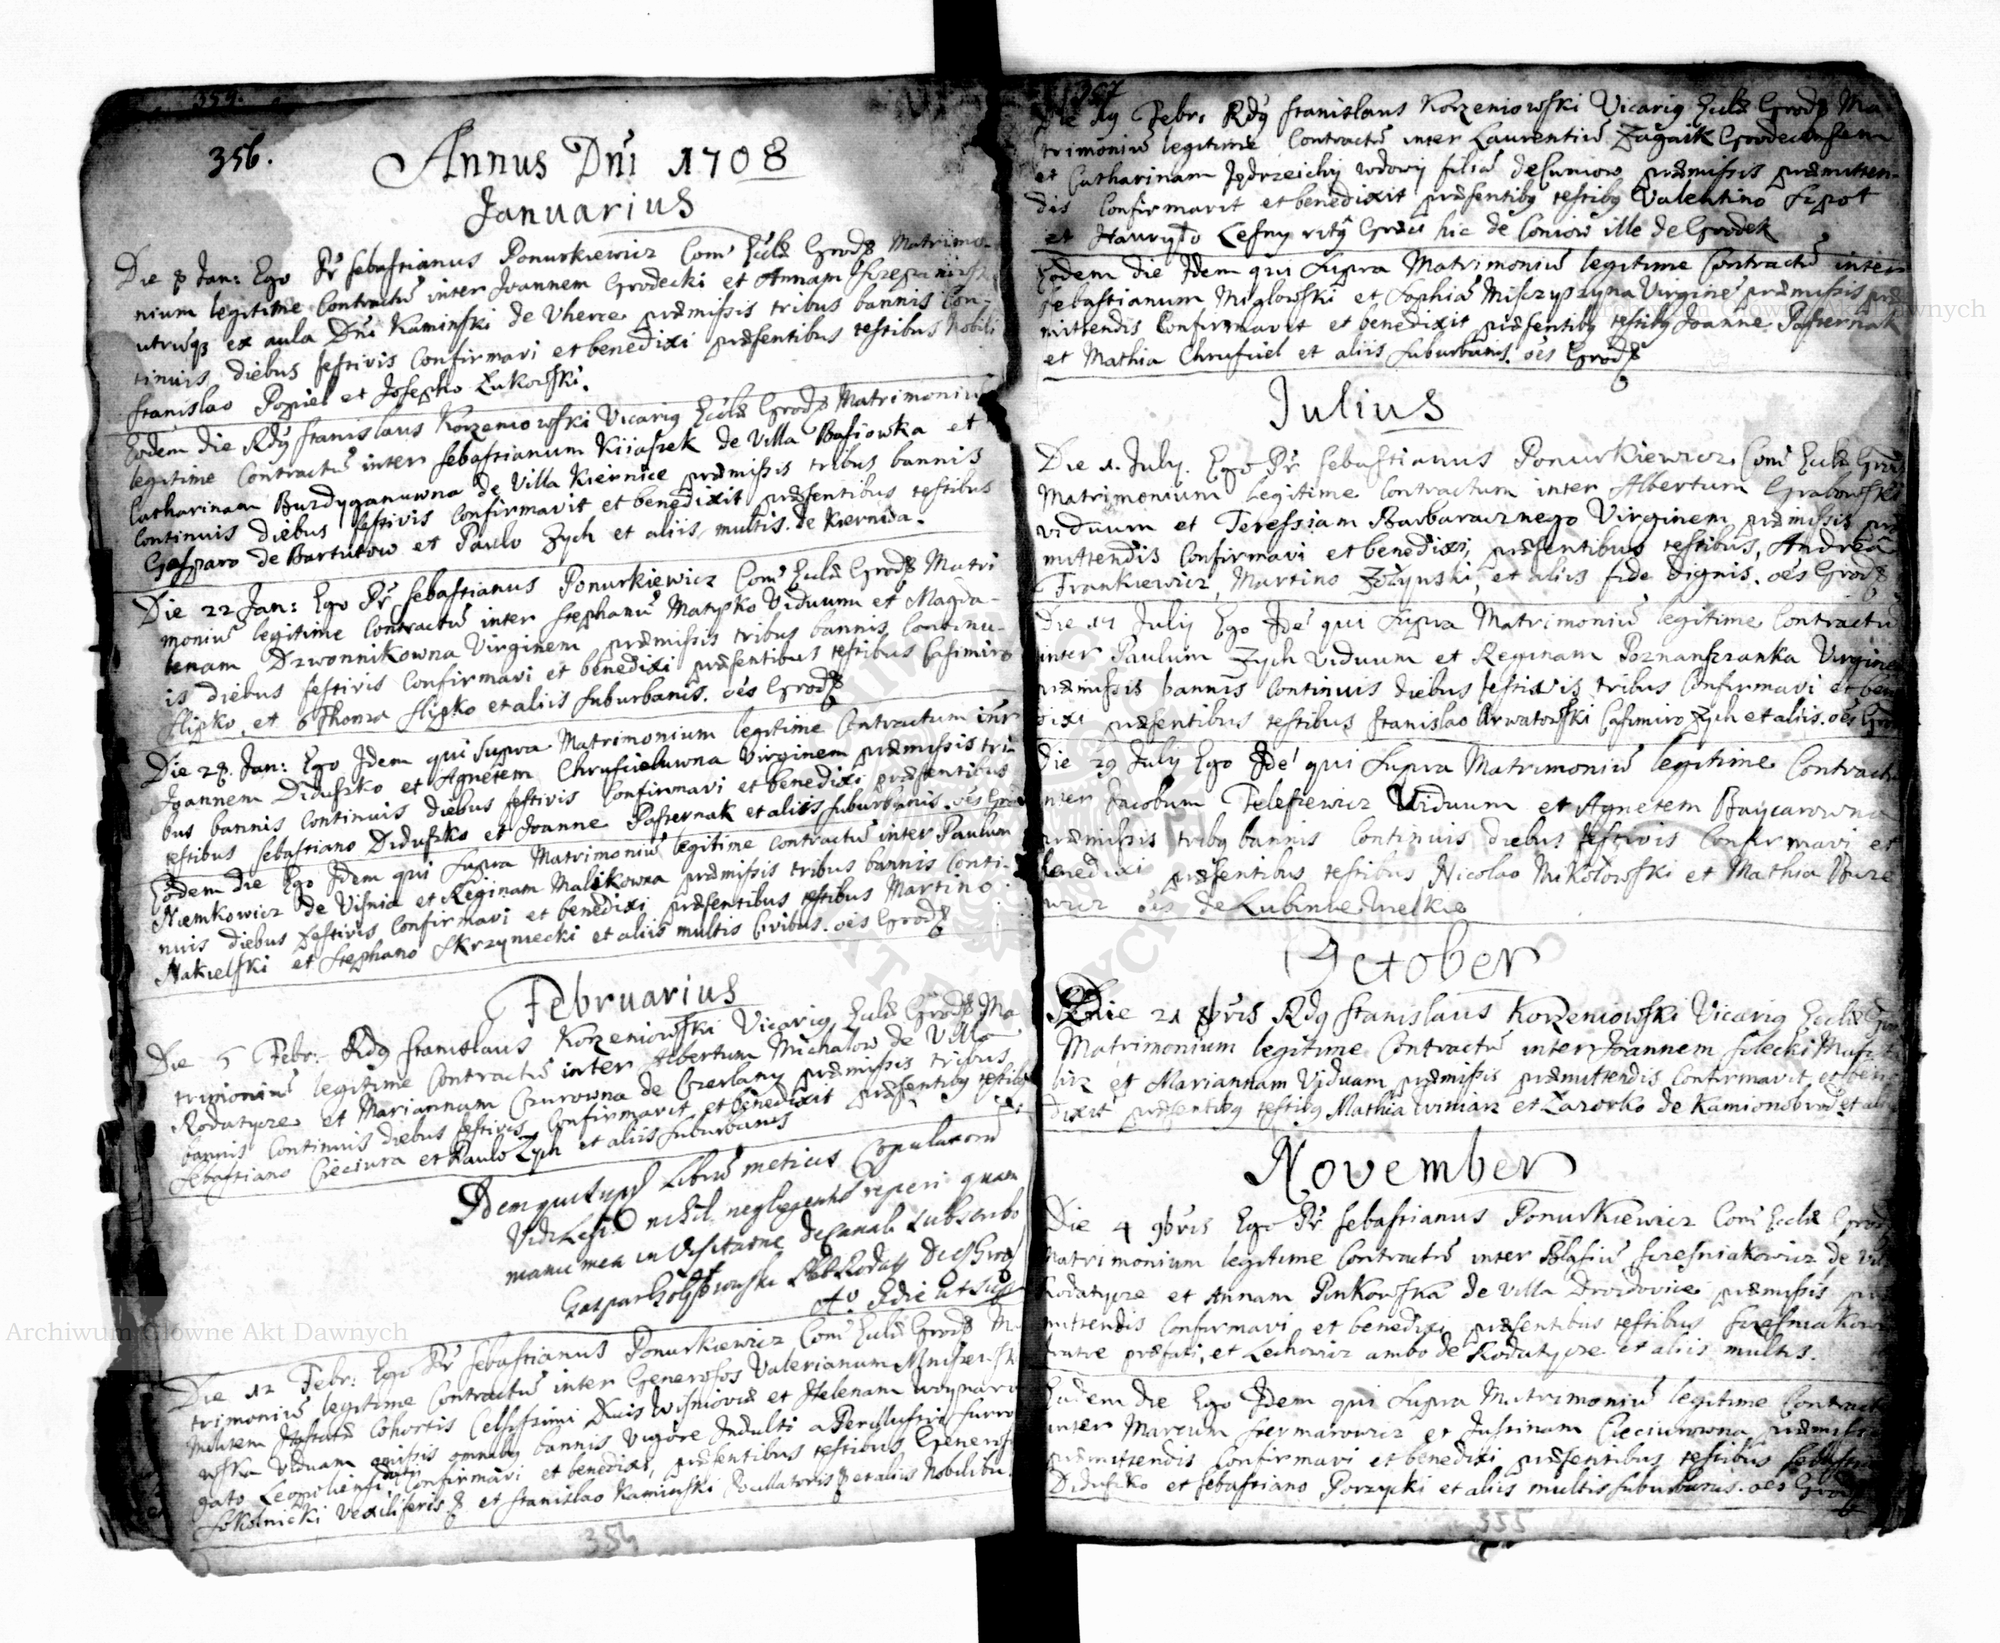 354.
356.
Annus Dni 1708
Januarius
Die 8 Jan: Ego Pr Sebastianus Ponurkiewicz Com Eccl Grod Matrimo-
nium legitime Contractu inter Joannem Grodecki et Annam
utrosq ex aula Dni Kaminski de Uherce præmissis tribus bannis Con-
tinuis diebus festivis Confirmavi et benedixi præsentibus testibus Nobili
Stanislao Popiel et Josepho Łukowski.
Eodem die Rdg Stanislaus Korzeniowski Vicarig Eccl Grod Matrimoniu
legitime Contractu inter Sebastianum Kijaszek de Villa Basiowka et
Catharinam Burdyganuwna de Villa Kiernice præmissis tribus bannis
Continuis diebus festivis Confirmavit et benedixit præsentibus testibus
Gasparo de Bartutow et Paulo Zych et aliis multis de Kiernica.
Die 22 Jan: Ego Pr Sebastianus Ponurkiewicz Com Eccl Grod Matri
moniu legitime Contractu inter Stephanu Matysko Viduum et Magda-
lenam Dzwonnikowna Virginem præmissis tribus bannis Continu-
is diebus festivis Confirmavi et benedixi præsentibus testibus Casimiro
Slipko, et Thoma Slipko et aliis suburbanis. oes Grod
Die 28. Jan: Ego Idem qui supra Matrimonium legitime Contractum inter
Joannem Diduszko et Agnetem Chrusielowna Virginem præmissis tri-
bus bannis Continuis diebus festivis Confirmavi et benedixi præsentibus
testibus Sebastiano Diduszko et Joanne Pasternak et aliis suburbanis. oes Grod
Eodem die Ego Idem qui supra Matrimoniu legitime contractu inter Paulum
Niemkowicz de Visnia et Reginam Malikowna præmissis tribus bannis Conti-
nuis diebus festivis Confirmavi et benedixi præsentibus testibus Martino
Nakielski et Stephano Skrzyniecki et aliis multis Civibus. oes Grod
Februarius
Die 5 Febr: Rdg Stanislaus Korzeniowski Vicarig Eccl Grod Ma
trimoniu legitime Contractu inter Albertum Michałow de Villa
Rodatycze et Mariannam Czurowna de Czerlany præmissis tribus
bannis Continuis diebus festivis Confirmavit et benedixit præsentibg testibus
Sebastiano Cieciura et Paulo Zych et aliis suburbanis
Idem qui supra Libru metices Copulatoru
Vidi Legi nihil neglegentiæ reperi quam
manu mea in Visitatione decanali subscribo
Gaspar
Ao die ut supra
Die 12 Febr: Ego Pr Sebastianus Ponurkiewicz Com Eccl Grod Ma
trimoniu legitime Contractu inter Generosos Valerianum Mniszek
Militem Hastatæ Cohortis Celsissimi Ducis Wisniovie et Helenam Woynaro
wska Viduam omissis omnibg bannis vigore Indulti a Perillustri Surro
gato Leopoliensi Confirmavi et benedixi, præsentibus testibus Generoso
Sokolnicki Vexilliferis et Stanislao Kaminski et aliis Nobilibus.
354
357
Die 19 Febr: Rdg Stanislaus Korzeniowski Vicarig Eccl Grod Ma
trimoniu legitime Contractu inter Laurentiu Zugaik Grodecensem
et Catharinam Jędrzeichy wdowy filia de Cuniow præmissis præmitten-
dis Confirmavit et benedixit præsentibg testibg Valentino Szpot
et Hawryło Lesny ritg Græci hic de Coniow ille de Grodek
Eodem die Idem qui supra Matrimoniu legitime Contractu inter
Sebastianum Miglowski et Sophia Misczyszyna Virgine præmissis præ
mittendis Confirmavit et benedixit præsentibg testibg Joanne Pasternak
et Mathia Chrusiel et aliis suburbanis. oes Grod
Julius
Die 1. July. Ego Pr Sebastianus Ponurkiewicz Com Eccl Grod
Matrimonium legitime Contractum inter Albertum Grabowski
viduum et Teressiam Barbaracznego Virginem præmissis præ
mittendis Confirmavi et benedixi, præsentibus testibus, Andrea
Frankiewicz, Martino Zołynski, et aliis fide dignis. oes Grod
Die 17 July Ego Ide qui supra Matrimoniu legitime Contractu
inter Paulum Zych Viduum et Reginam Poznanszczanka Virgine
præmissis bannis Continuis diebus festivis tribus Confirmavi et bene
dixi præsentibus testibus Stanislao Arwatowski Casimiro Zych et aliis. oes Grod
Die 29 July Ego Ide qui supra Matrimoniu legitime Contractu
inter Jacobum Telesiewicz Viduum et Agnetem Baycarowna
præmissis tribg bannis Continuis diebus festivis Confirmavi et
benedixi præsentibus testibus Nicolao Mikołowski et Mathia Bure
wicz oes de Lubinie Wielkie
October
Die 21 8bris Rdg Stanislaus Korzeniowski Vicarig Eccl Grod
Matrimonium legitime Contractu inter Joannem Silecki
et Mariannam Viduam præmissis præmittendis Confirmavit et bene
dixit præsentibg testibg Mathia winiarz et Łazorko de Kamionobrod et aliis
November
Die 4 9bris Ego Pr Sebastianus Ponurkiewicz Com Eccl Grod
Matrimonium legitime Contractu inter Blasiu Szesniakowicz de Villa
Rodatycze et Annam Pinkowska de Villa Drozdovice præmissis præ
mittendis Confirmavi et benedixi præsentibus testibus Szesniakowicz
fratre præfati, et Lechowicz ambo de Rodatycze et aliis multis.
Eodem die Ego Idem qui supra Matrimoniu legitime Contractu
inter Marcum Stermarowicz et Justinam Cieciurowna præmissis
præmittendis Confirmavi et benedixi præsentibus testibus Sebastiano
Diduszko et Sebastiano Porzycki et aliis multis suburbanis. oes Grod
355
Archiwum Główne Akt Dawnych
Archiwum Główne Akt Dawnych